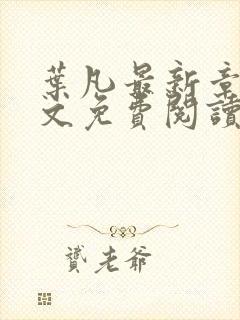 葉凡最新章
文免費閱讀
贇老爺